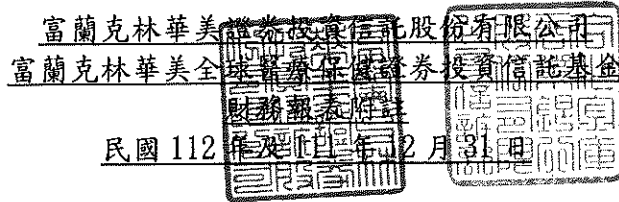 富蘭克林華美證券投資信託股份有限公司
富蘭克林華美全球醫療保健證券投資信託基金
財務報表附註
民國 112 年及 111 年 12 月 31 日